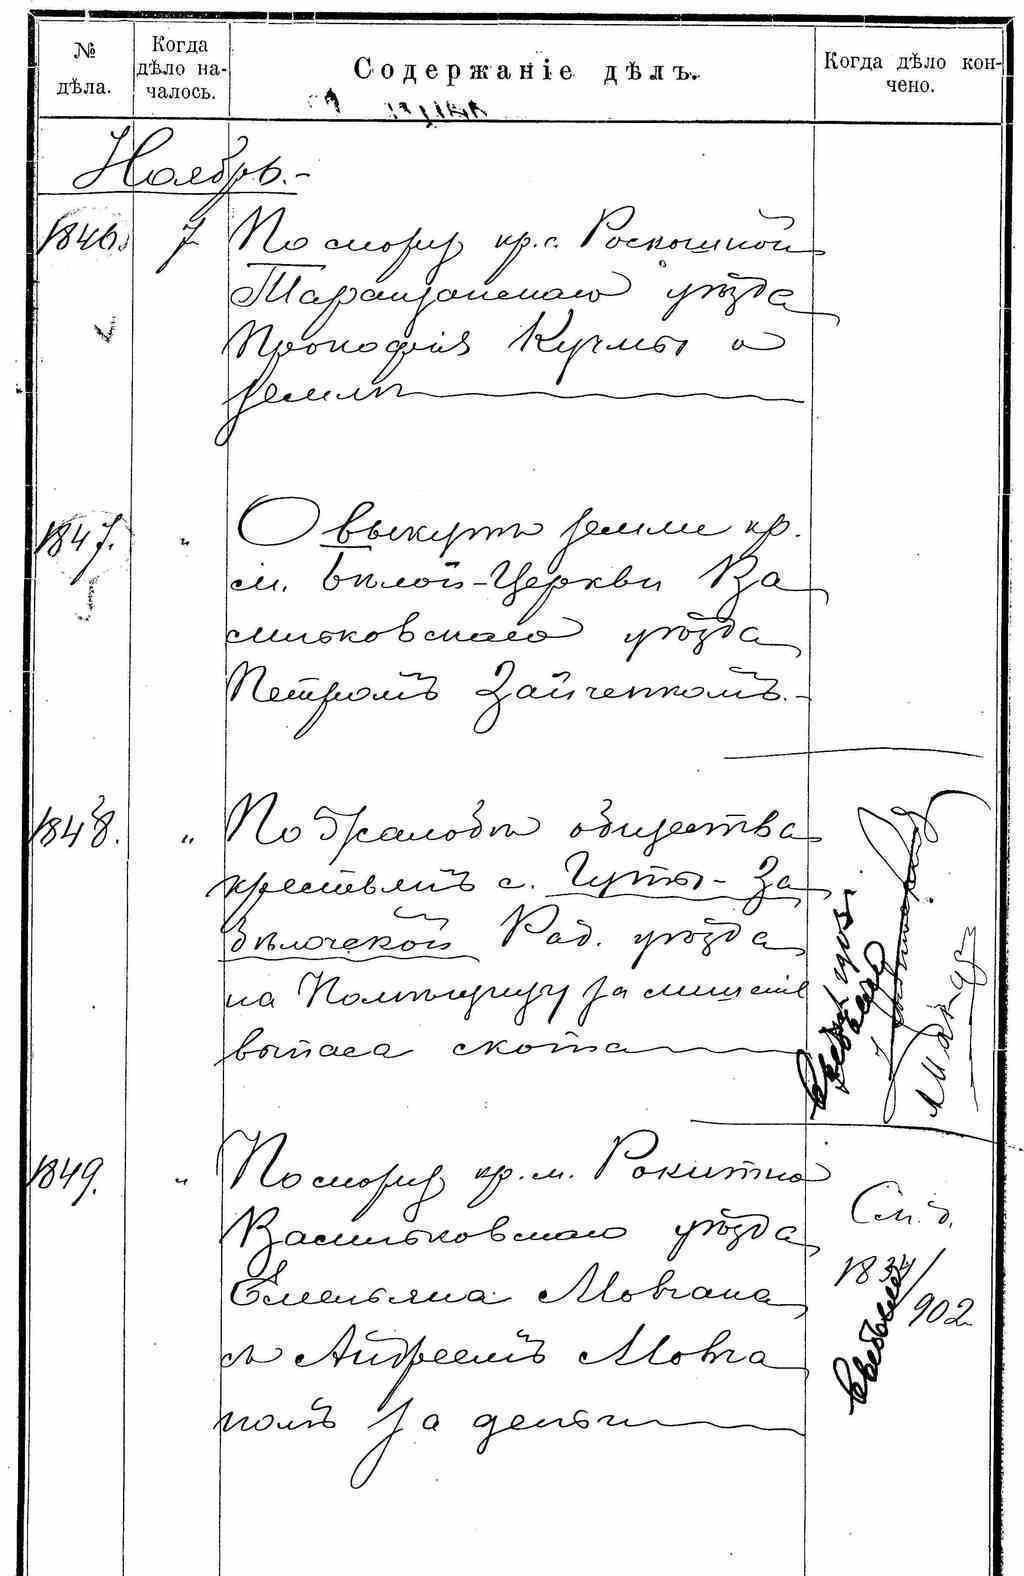 № дѣла.
Когда дѣло на-чалось.
Содержаніе дѣлъ.
Когда дѣло кон-чено.
Ноябрь.-
1846. 7 По спору кр. с. Роскошной
Таращанскаго уѣзда
Прокофія Кучмы о
землѣ
1847. " О выкупѣ земли кр.
м. Бѣлой-Церкви Ва
сильковскаго уѣзда
Петромъ Зайченкомъ.-
1848. " По жалобѣ общества
крестьянъ с. Гуты-За
бѣлочской Рад. уѣзда
на
за лишеніе
выпаса скота
1849. " По спору кр. м. Рокитно
Васильковскаго уѣзда
Емельяна Мовчана
съ Андреемъ Мовча
номъ за деньги
См. д.
902